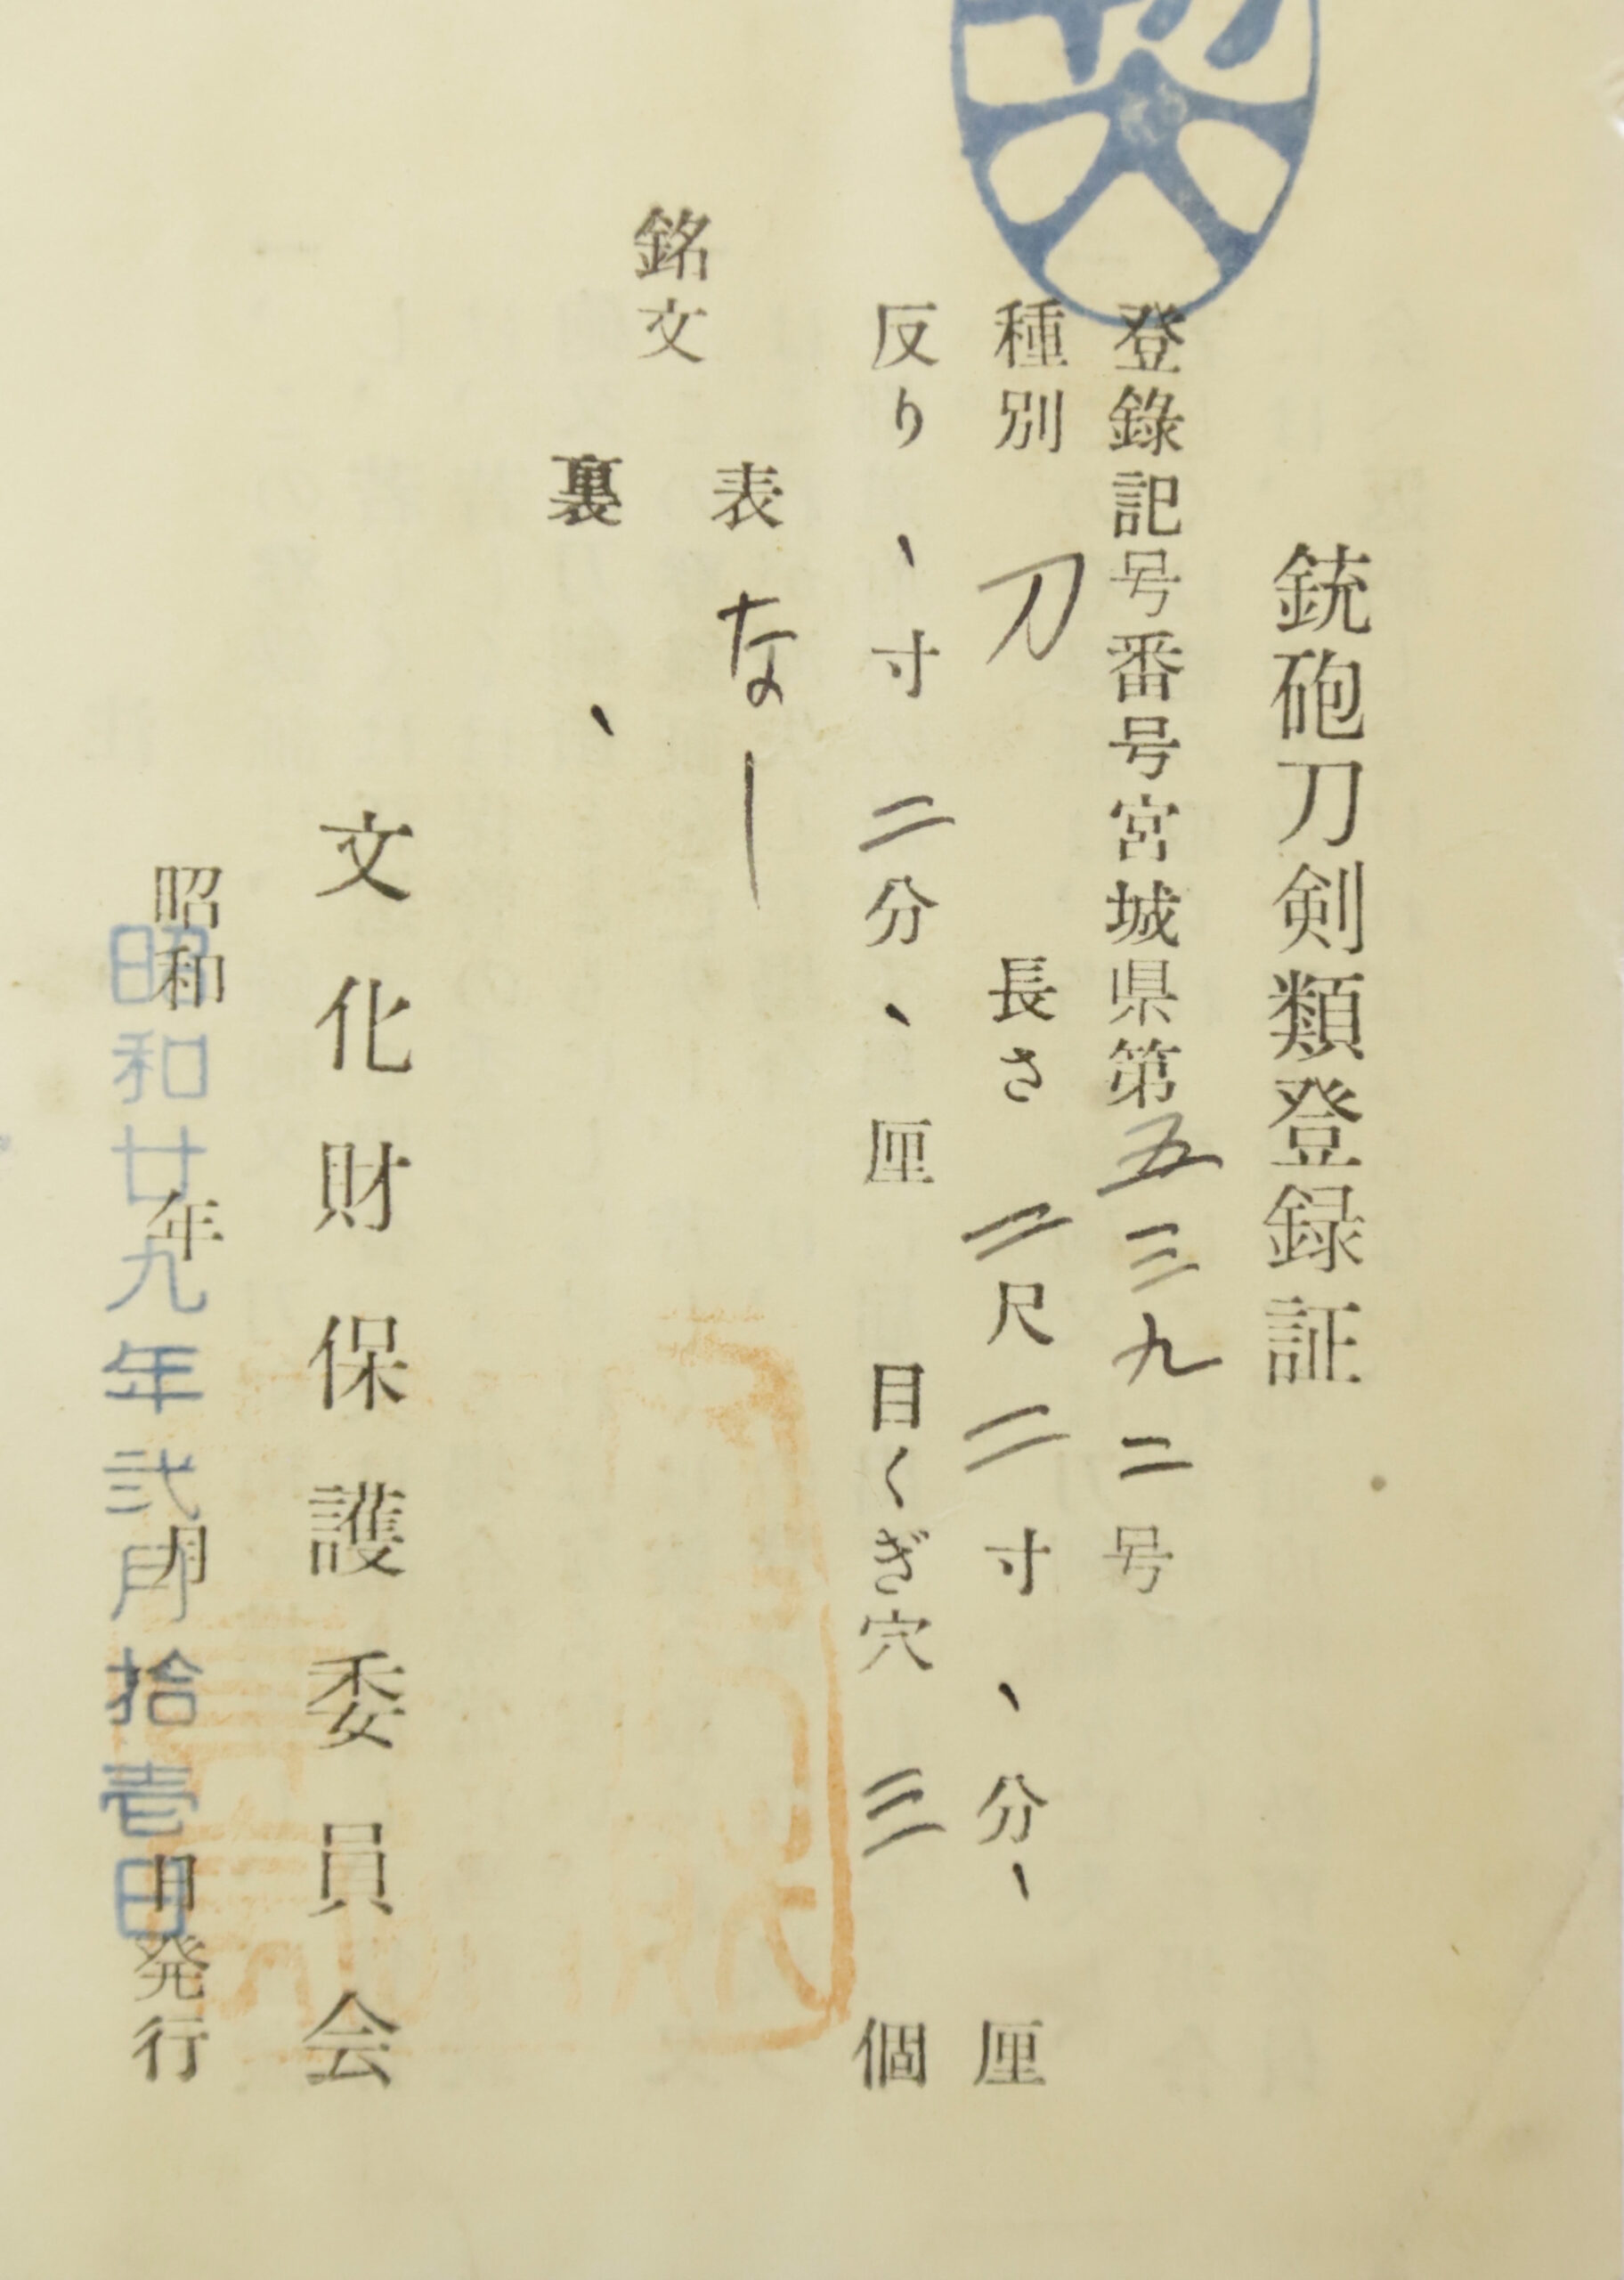 銃砲刀剣類登録証
登錄記号番号宮城県第五三九二号
種別 刀 長さ 二尺二寸、分、厘
反り 、寸二分、厘 目くぎ穴 三個
銘文
表 なし
裏 、
文化財保護委員会
昭和 年 月 日発行
昭和廿九年弐月拾壱日